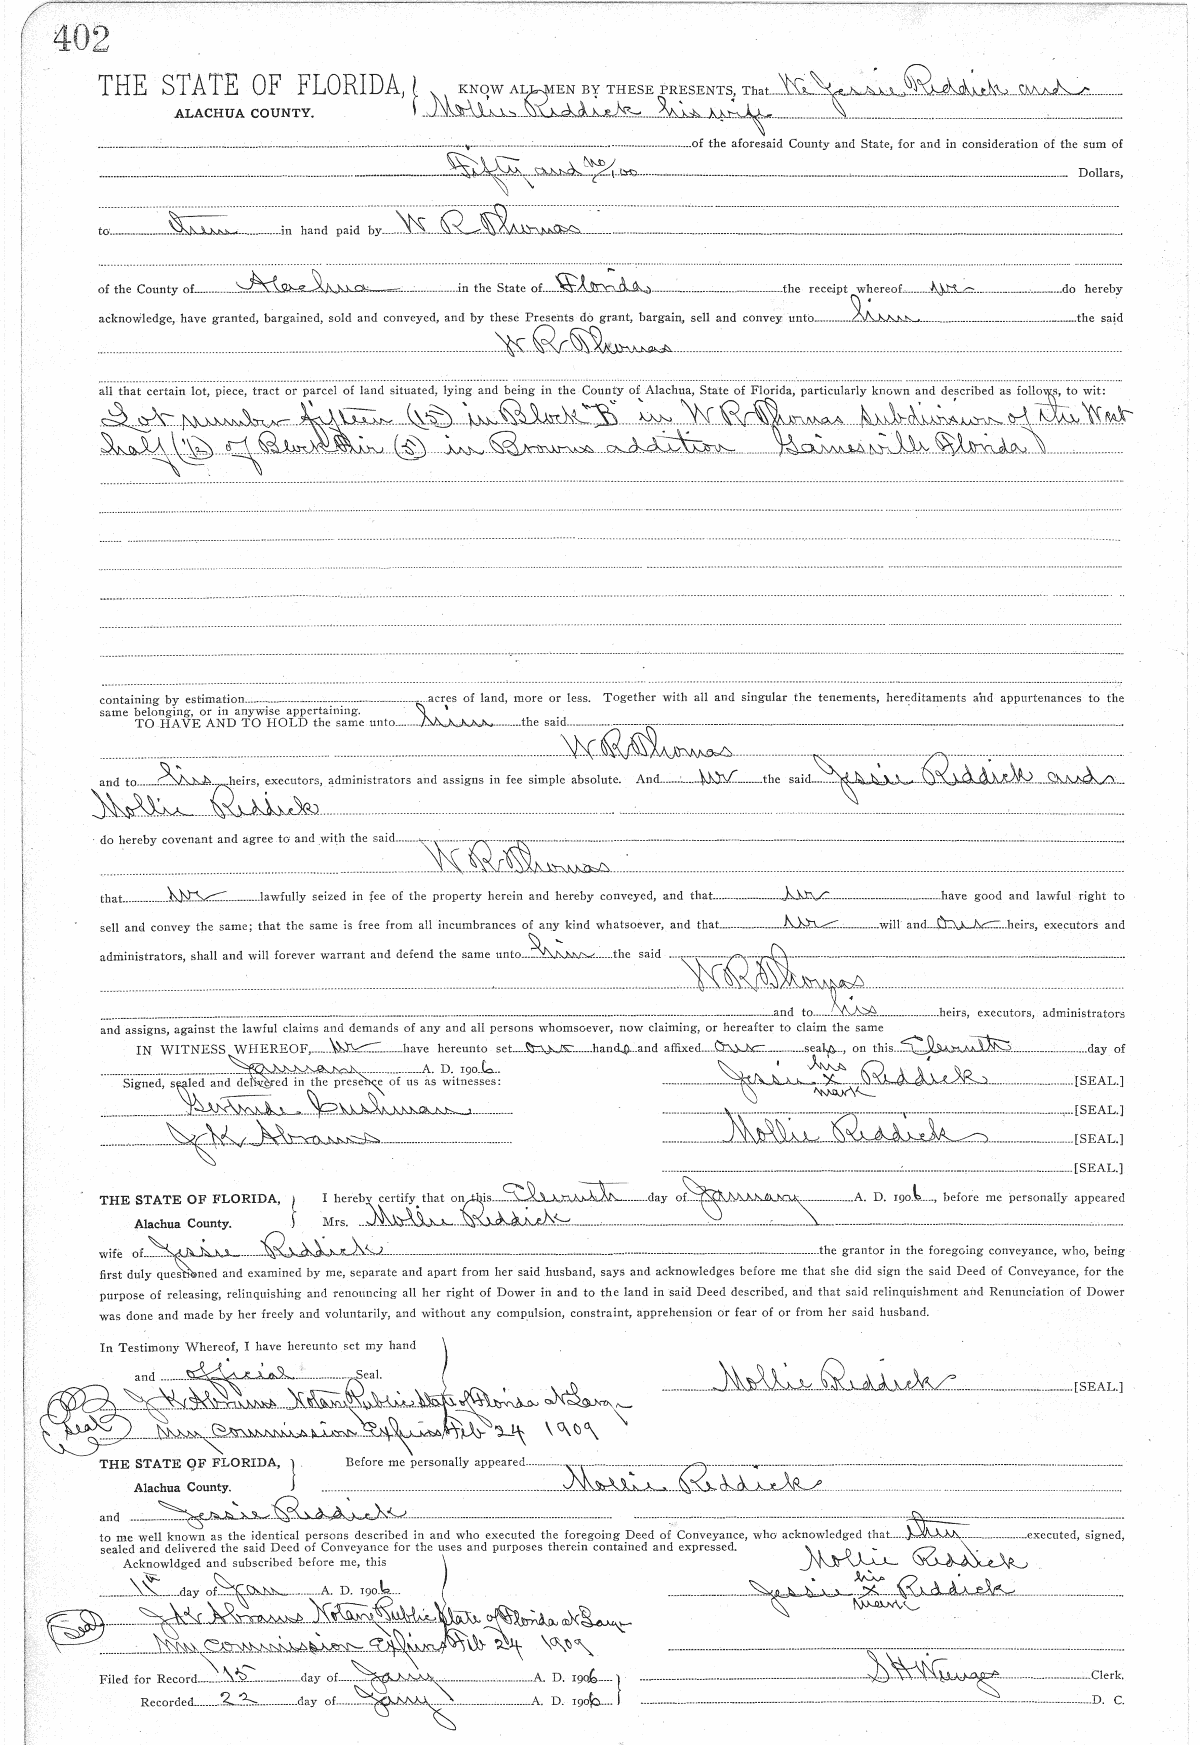 402
THE STATE OF FLORIDA,
ALACHUA COUNTY.
KNOW ALL MEN BY THESE PRESENTS, That We Jessie Reddick and
Mollie Reddick his wife
of the aforesaid County and State, for and in consideration of the sum of
Fifty and no/100 Dollars,
to them in hand paid by W R Thomas
of the County of Alachua in the State of Florida the receipt whereof we do hereby
acknowledge, have granted, bargained, sold and conveyed, and by these Presents do grant, bargain, sell and convey unto him the said
W R Thomas
all that certain lot, piece, tract or parcel of land situated, lying and being in the County of Alachua, State of Florida, particularly known and described as follows, to wit:
Lot number fifteen (15) in Block "B" in W R Thomas Subdivision of the West
half (1/2) of Block five (5) in Browns addition Gainesville Florida
containing by estimation acres of land, more or less. Together with all and singular the tenements, hereditaments and appurtenances to the
same belonging, or in anywise appertaining.
TO HAVE AND TO HOLD the same unto him the said
W R Thomas
and to his heirs, executors, administrators and assigns in fee simple absolute. And we the said Jessie Reddick and
Mollie Reddick
do hereby covenant and agree to and with the said
W R Thomas
that we lawfully seized in fee of the property herein and hereby conveyed, and that we have good and lawful right to
sell and convey the same; that the same is free from all incumbrances of any kind whatsoever, and that we will and our heirs, executors and
administrators, shall and will forever warrant and defend the same unto him the said
W R Thomas
and to his heirs, executors, administrators
and assigns, against the lawful claims and demands of any and all persons whomsoever, now claiming, or hereafter to claim the same
IN WITNESS WHEREOF, we have hereunto set our hands and affixed our seals, on this Eleventh day of
January A. D. 1906
Signed, sealed and delivered in the presence of us as witnesses:
Jessie his x mark Reddick [SEAL.]
Gertrude Cushman [SEAL.]
J K Abrams Mollie Reddick [SEAL.]
[SEAL.]
THE STATE OF FLORIDA,
Alachua County.
I hereby certify that on this Eleventh day of January A. D. 1906, before me personally appeared
Mrs. Mollie Reddick
wife of Jessie Reddick the grantor in the foregoing conveyance, who, being
first duly questioned and examined by me, separate and apart from her said husband, says and acknowledges before me that she did sign the said Deed of Conveyance, for the
purpose of releasing, relinquishing and renouncing all her right of Dower in and to the land in said Deed described, and that said relinquishment and Renunciation of Dower
was done and made by her freely and voluntarily, and without any compulsion, constraint, apprehension or fear of or from her said husband.
In Testimony Whereof, I have hereunto set my hand
and official Seal.
Mollie Reddick [SEAL.]
J K Abrams Notary Public State of Florida at Large
Seal My Commission Expires Feb 24 1909
THE STATE OF FLORIDA,
Alachua County.
Before me personally appeared
Mollie Reddick
and Jessie Reddick
to me well known as the identical persons described in and who executed the foregoing Deed of Conveyance, who acknowledged that they executed, signed,
sealed and delivered the said Deed of Conveyance for the uses and purposes therein contained and expressed.
Acknowldged and subscribed before me, this
Mollie Reddick
11th day of Jan A. D. 1906
Jessie his x mark Reddick
Seal J K Abrams Notary Public State of Florida at Large
My Commission Expires Feb 24 1909
Filed for Record 15 day of Jany A. D. 1906 S H Wienges Clerk.
Recorded 22 day of Jany A. D. 1906 D. C.